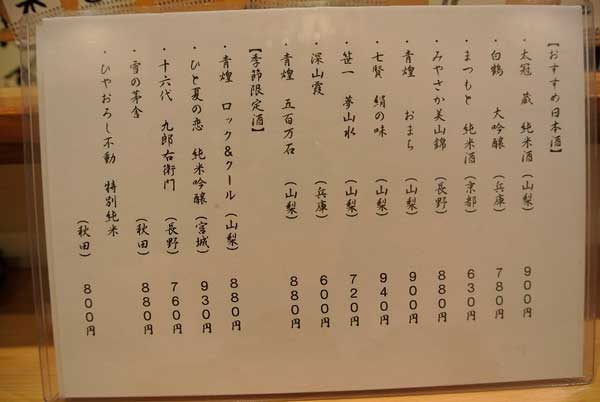 【おすすめ日本酒】
・太冠 蔵 純米酒(山梨) 900円
・白鶴 大吟醸(兵庫) 780円
・まつもと 純米酒(京都) 630円
・みやさか美山錦(長野) 880円
・青煌 おまち(山梨) 900円
・七賢 絹の味(山梨) 940円
・笹一 夢山水(山梨) 720円
・深山霞(兵庫) 600円
・青煌 五百万石(山梨) 880円
【季節限定酒】
・青煌 ロック&クール(山梨) 880円
・ひと夏の恋 純米吟醸(宮城) 930円
・十六代 九郎右衛門(長野) 760円
・雪の茅舎(秋田) 880円
・ひやおろし不動 特別純米(秋田) 800円